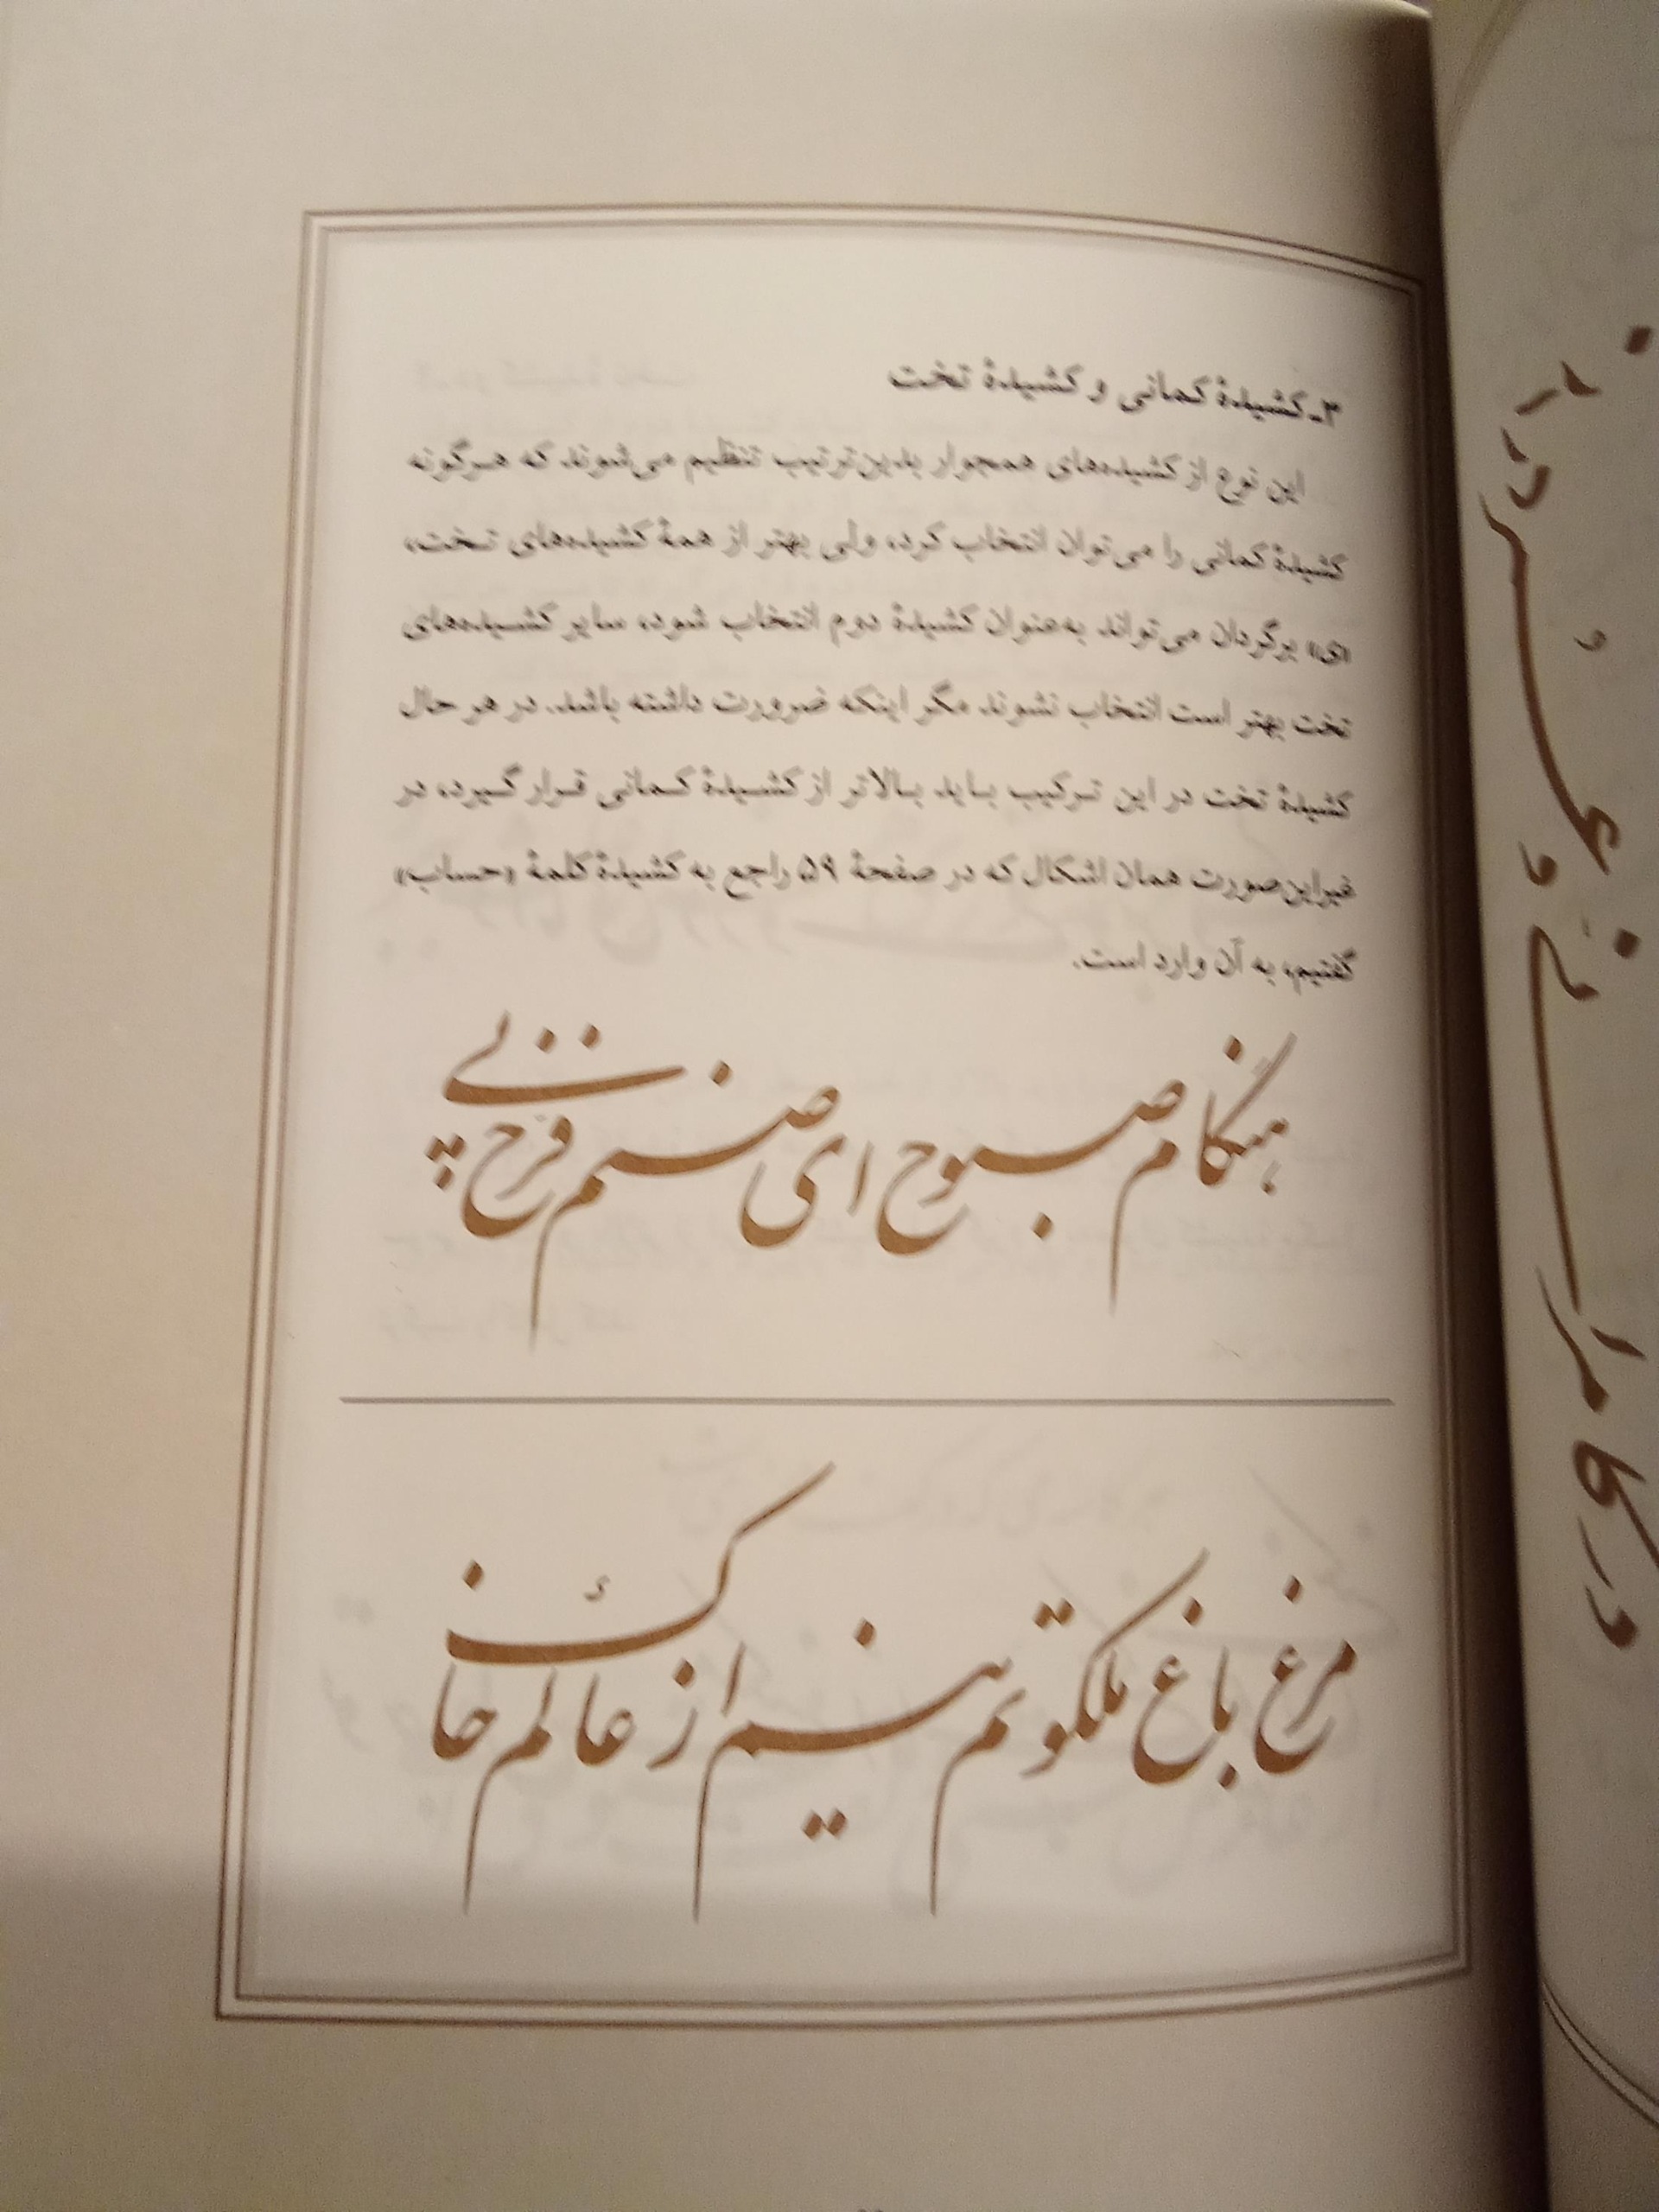 ۳ـ کشیدهٔ کمانی و کشیدهٔ تخت
این نوع از کشیده‌های همجوار بدین‌ترتیب تنظیم می‌شوند که هرگونه
کشیدهٔ کمانی را می‌توان انتخاب کرد، ولی بهتر از همهٔ کشیده‌های تخت،
«ی» برگردان می‌تواند به‌عنوان کشیدهٔ دوم انتخاب شود، سایر کشیده‌های
تخت بهتر است انتخاب نشوند مگر اینکه ضرورت داشته باشد. در هر حال
کشیدهٔ تخت در این ترکیب باید بالاتر از کشیدهٔ کمانی قرار گیرد، در
غیراین‌صورت همان اشکال که در صفحهٔ ۵۹ راجع به کشیدهٔ کلمهٔ «حساب»
گفتیم، به آن وارد است.
هنگام صبوح ای صنم فرخ پی
مرغ باغ ملکوتم نیم از عالم خاک